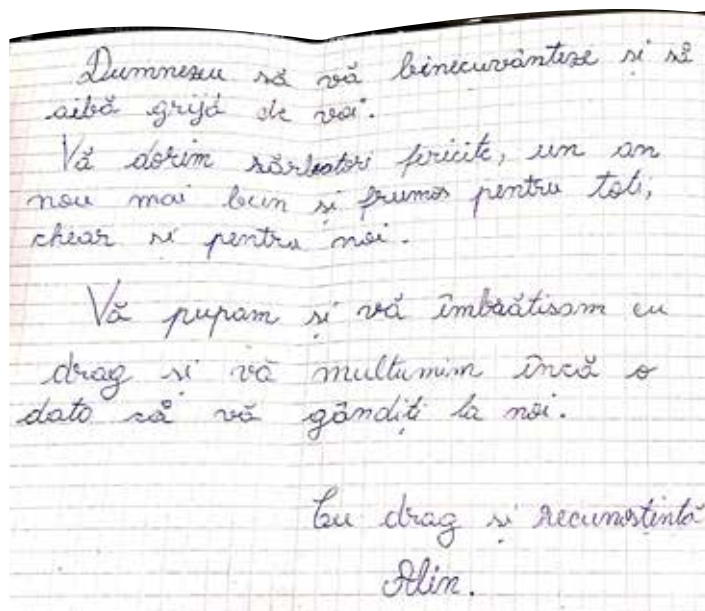 Dumnezeu să vă binecuvânteze și să
aibă grijă de voi.
Vă dorim sărbatori fericite, un an
nou mai bun și frumos pentru toti,
chear si pentru noi.
Vă pupam și vă îmbrătisam cu
drag si vă multumim încă o
dato că vă gândiți la noi.
Cu drag și recunostintă
Alin.